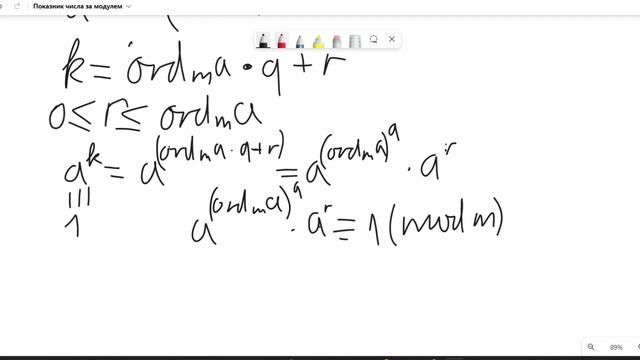 Показник числа за модулем
k = ord_m a · q + r
0 ≤ r ≤ ord_m a
a^k = a^(ord_m a · q + r) = a^(ord_m a)^q · a^r
≡
1 a^(ord_m a)^q · a^r ≡ 1 (mod m)
89%